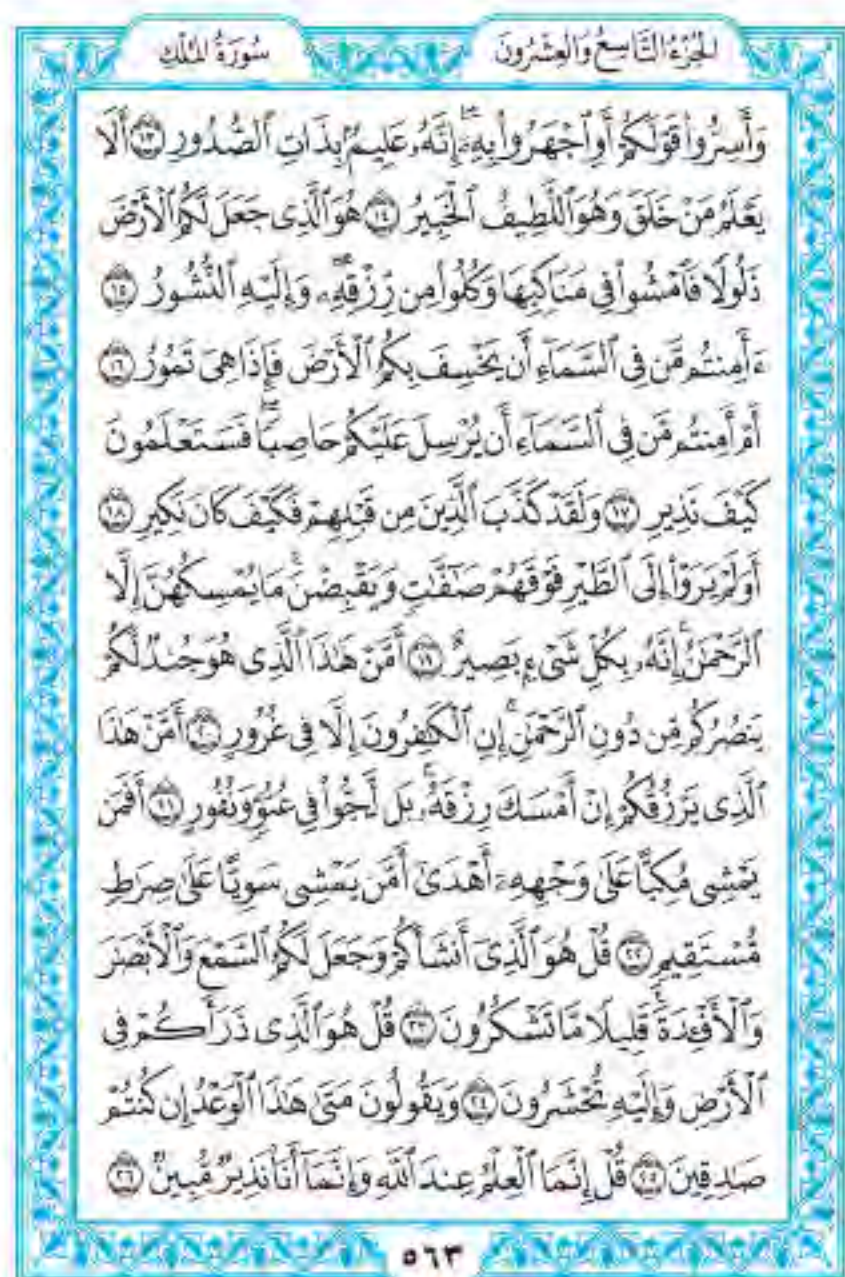 الجُزْءُ التَّاسِعُ وَالْعِشْرُونَ
سُورَةُ المُلْكِ
وَأَسِرُّوا۟ قَوْلَكُمْ أَوِ ٱجْهَرُوا۟ بِهِۦٓ ۖ إِنَّهُۥ عَلِيمٌۢ بِذَاتِ ٱلصُّدُورِ ١٣ أَلَا
يَعْلَمُ مَنْ خَلَقَ وَهُوَ ٱللَّطِيفُ ٱلْخَبِيرُ ١٤ هُوَ ٱلَّذِى جَعَلَ لَكُمُ ٱلْأَرْضَ
ذَلُولًا فَٱمْشُوا۟ فِى مَنَاكِبِهَا وَكُلُوا۟ مِن رِّزْقِهِۦ ۖ وَإِلَيْهِ ٱلنُّشُورُ ١٥
ءَأَمِنتُم مَّن فِى ٱلسَّمَآءِ أَن يَخْسِفَ بِكُمُ ٱلْأَرْضَ فَإِذَا هِىَ تَمُورُ ١٦
أَمْ أَمِنتُم مَّن فِى ٱلسَّمَآءِ أَن يُرْسِلَ عَلَيْكُمْ حَاصِبًا ۖ فَسَتَعْلَمُونَ
كَيْفَ نَذِيرِ ١٧ وَلَقَدْ كَذَّبَ ٱلَّذِينَ مِن قَبْلِهِمْ فَكَيْفَ كَانَ نَكِيرِ ١٨
أَوَلَمْ يَرَوْا۟ إِلَى ٱلطَّيْرِ فَوْقَهُمْ صَٰٓفَّٰتٍ وَيَقْبِضْنَ ۚ مَا يُمْسِكُهُنَّ إِلَّا
ٱلرَّحْمَٰنُ ۚ إِنَّهُۥ بِكُلِّ شَىْءٍۭ بَصِيرٌ ١٩ أَمَّنْ هَٰذَا ٱلَّذِى هُوَ جُندٌ لَّكُمْ
يَنصُرُكُم مِّن دُونِ ٱلرَّحْمَٰنِ ۚ إِنِ ٱلْكَٰفِرُونَ إِلَّا فِى غُرُورٍ ٢٠ أَمَّنْ هَٰذَا
ٱلَّذِى يَرْزُقُكُمْ إِنْ أَمْسَكَ رِزْقَهُۥ ۚ بَل لَّجُّوا۟ فِى عُتُوٍّ وَنُفُورٍ ٢١ أَفَمَن
يَمْشِى مُكِبًّا عَلَىٰ وَجْهِهِۦٓ أَهْدَىٰٓ أَمَّن يَمْشِى سَوِيًّا عَلَىٰ صِرَٰطٍ
مُّسْتَقِيمٍ ٢٢ قُلْ هُوَ ٱلَّذِىٓ أَنشَأَكُمْ وَجَعَلَ لَكُمُ ٱلسَّمْعَ وَٱلْأَبْصَٰرَ
وَٱلْأَفْـِٔدَةَ ۖ قَلِيلًا مَّا تَشْكُرُونَ ٢٣ قُلْ هُوَ ٱلَّذِى ذَرَأَكُمْ فِى
ٱلْأَرْضِ وَإِلَيْهِ تُحْشَرُونَ ٢٤ وَيَقُولُونَ مَتَىٰ هَٰذَا ٱلْوَعْدُ إِن كُنتُمْ
صَٰدِقِينَ ٢٥ قُلْ إِنَّمَا ٱلْعِلْمُ عِندَ ٱللَّهِ وَإِنَّمَآ أَنَا۠ نَذِيرٌ مُّبِينٌ ٢٦
٥٦٣